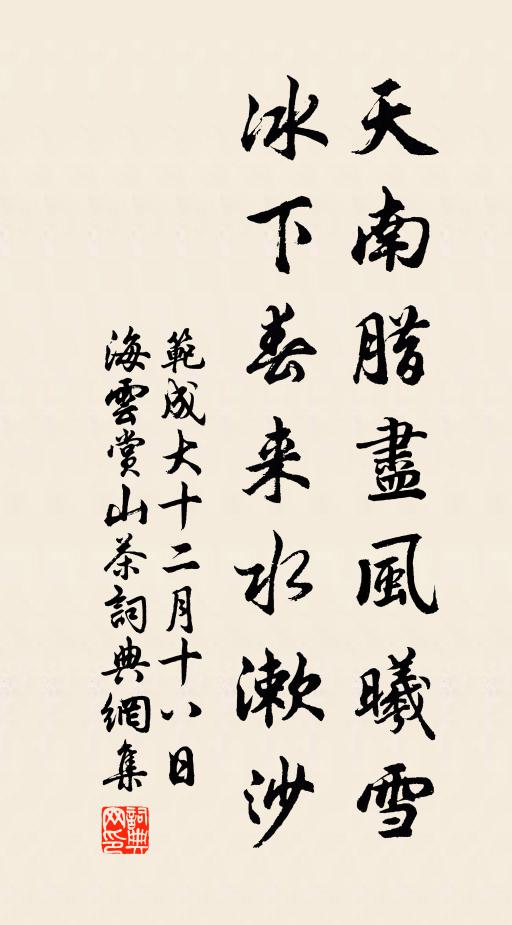 天南腊盡風曦雪
冰下春来水漱沙
範成大十二月十八日
海雲赏山茶詞典網集
詞典
网印